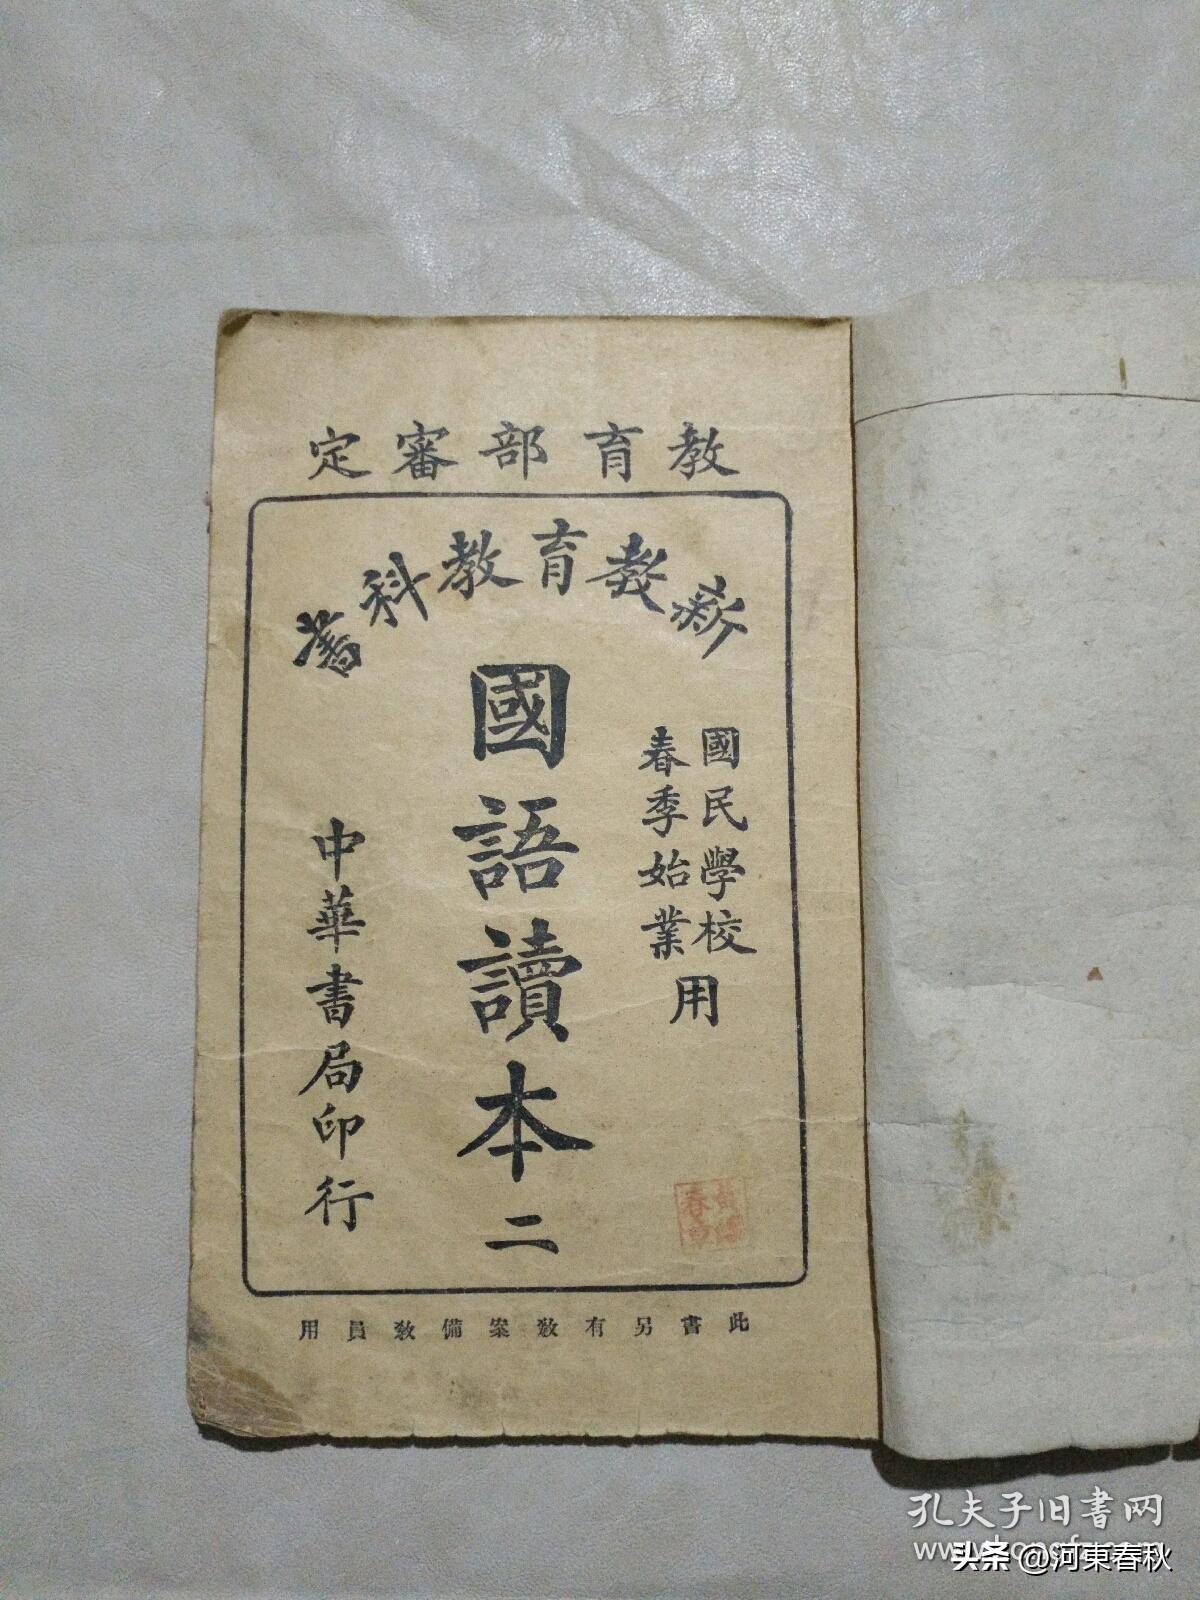 教育部審定
新教育教科書
國民學校
春季始業
用
國語讀本二
中華書局印行
此書另有教案備教員用
孔夫子旧书网
头条 @河東春秋